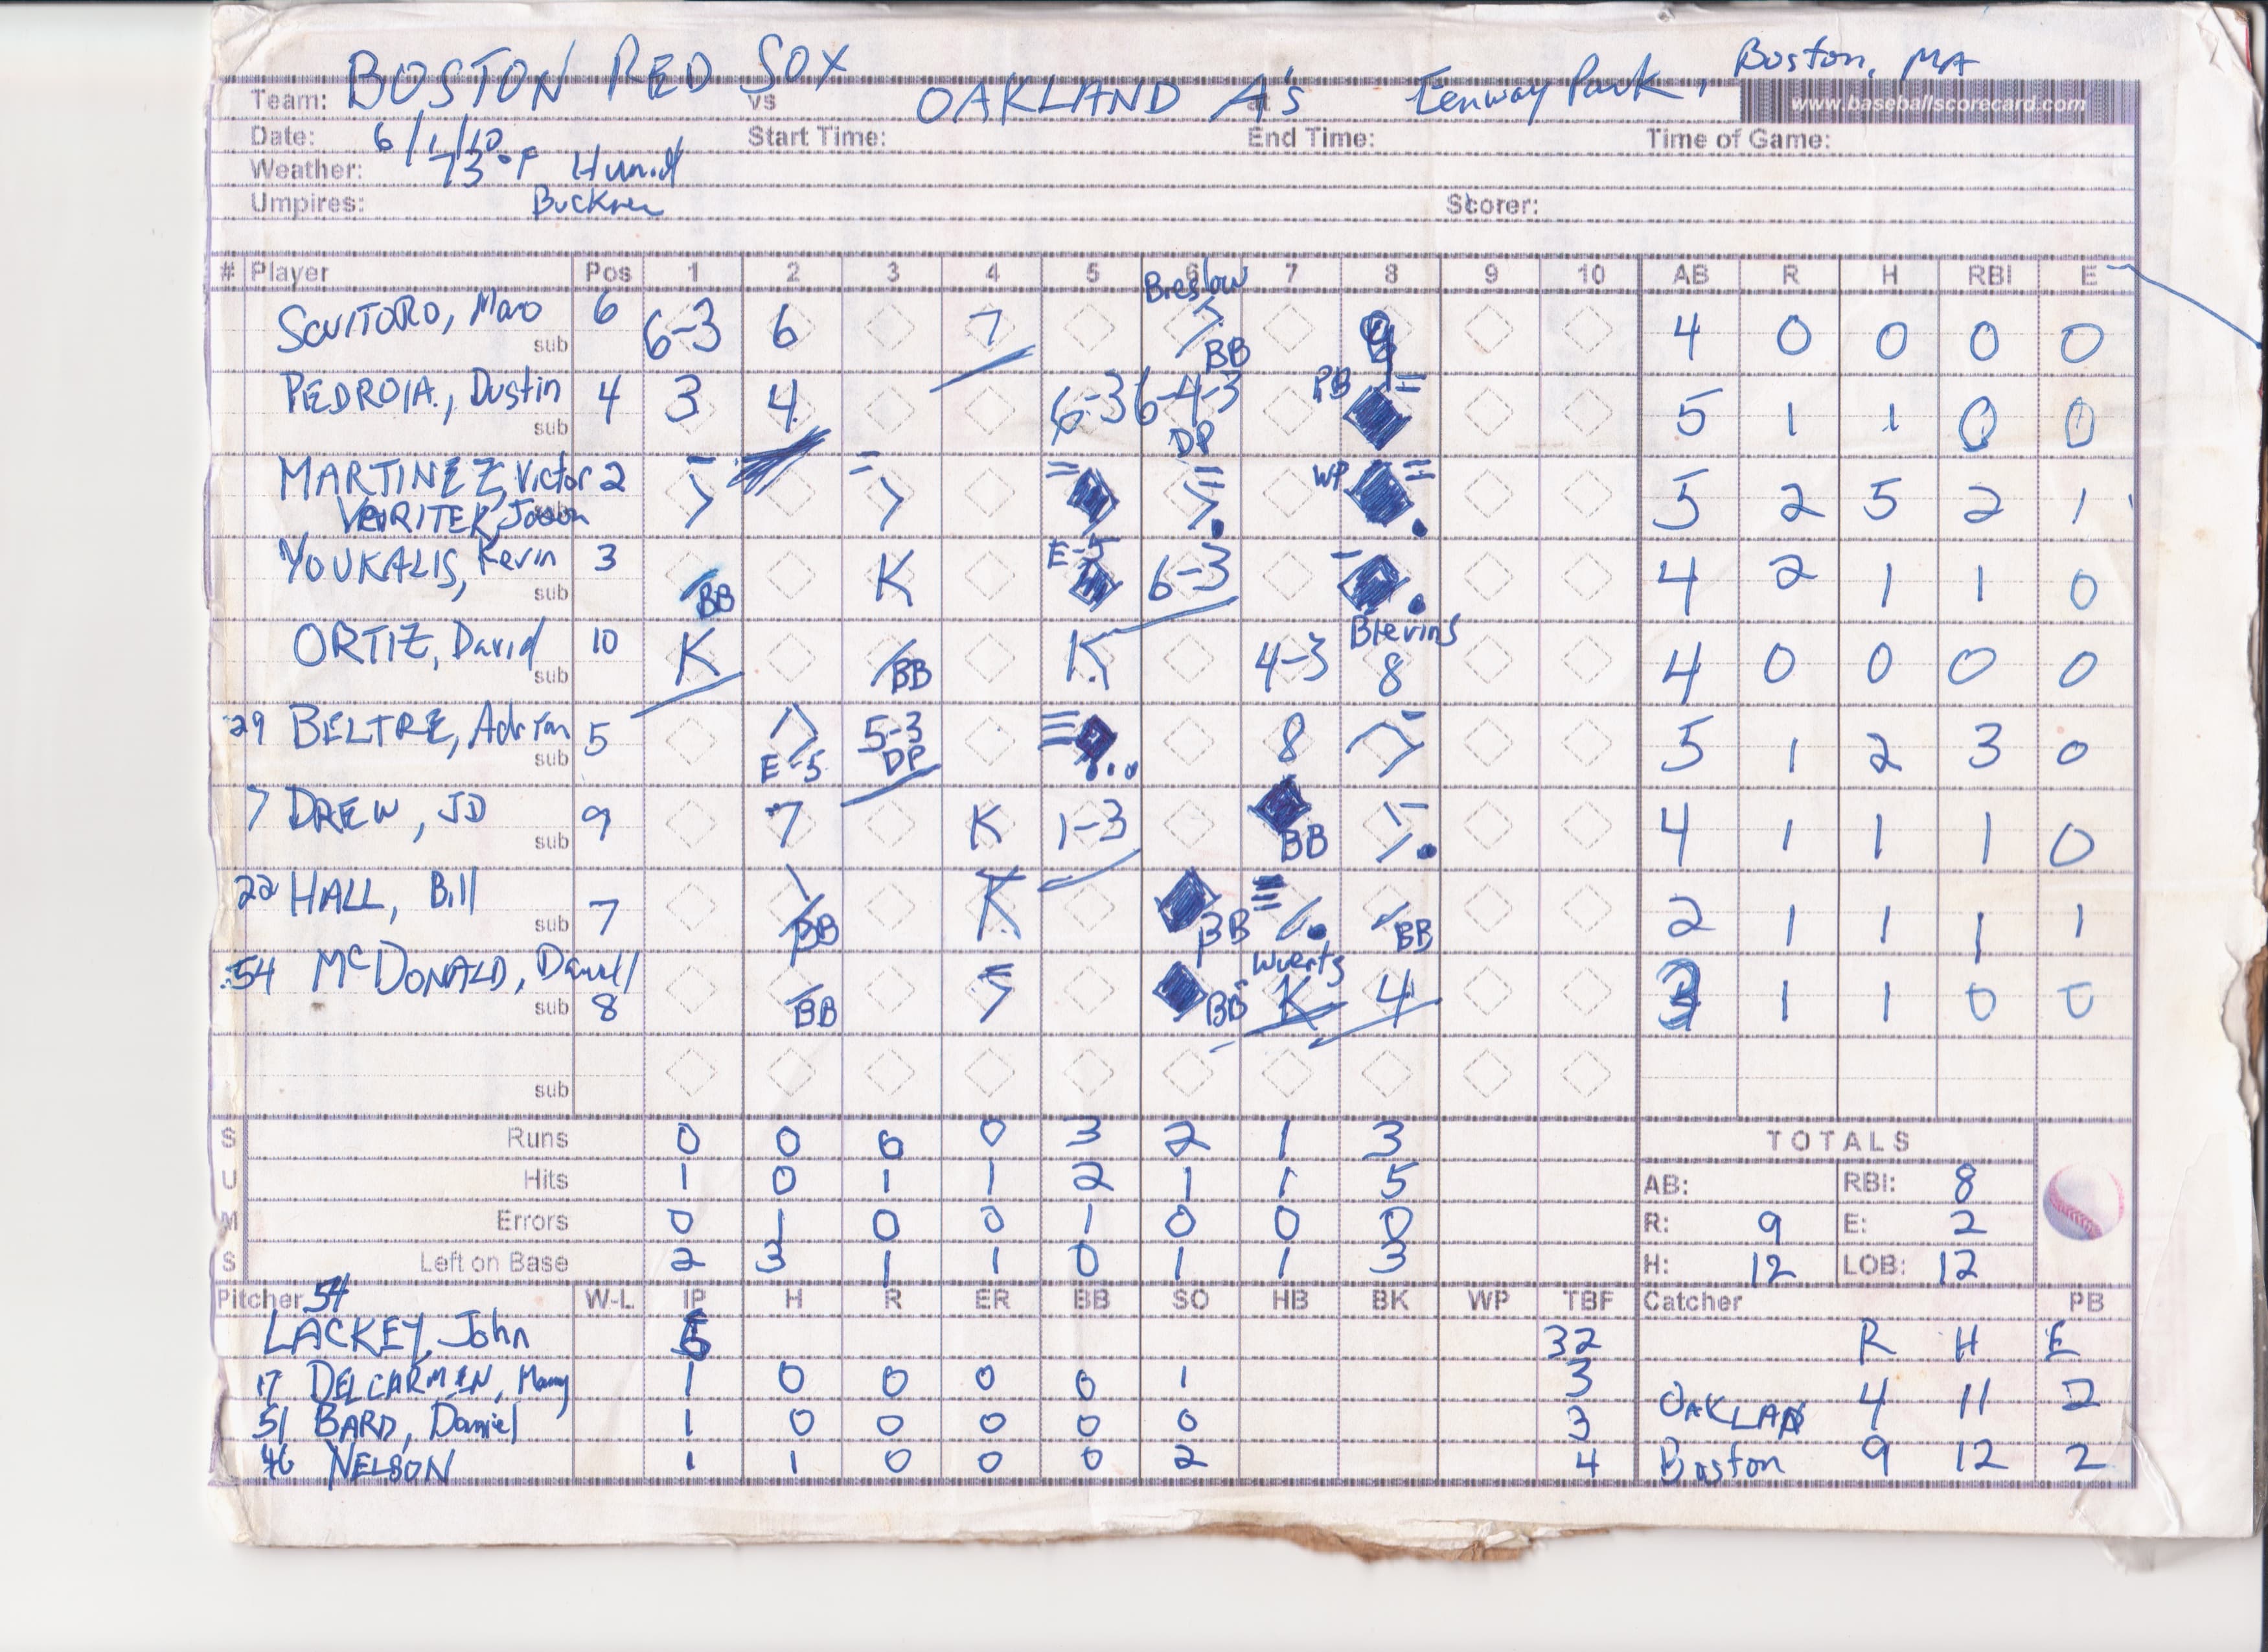 BOSTON RED SOX OAKLAND A's Fenway Park, Boston, MA
Team: vs at www.baseballscorecard.com
Date: 6/1/10 Start Time: End Time: Time of Game:
Weather: 73°F Humid
Umpires: Scorer:
# Player Pos 1 2 3 4 5 6 7 8 9 10 AB R H RBI E
Breslow
SCUITORO, Maro 6 6-3 6 7 BB 4 0 0 0 0
sub
PEDROIA, Dustin 4 3 4 6-3 6-4-3 DP PB 5 1 1 0 0
sub
MARTINEZ, Victor 2 WP 5 2 5 2 1
VARITEK, Jason
YOUKALIS, Kevin 3 BB K E-5 6-3 4 2 1 1 0
sub
Blevins
ORTIZ, David 10 K BB K 4-3 8 4 0 0 0 0
sub
29 BELTRE, Adrian 5 E-5 5-3 DP 8 5 1 2 3 0
sub
7 DREW, JD 9 7 K 1-3 BB 4 1 1 1 0
sub
22 HALL, Bill 7 BB K BB BB 2 1 1 1 1
sub
Wuertz
54 McDONALD, Darnell 8 BB BB K 4 3 1 1 0 0
sub
sub
S Runs 0 0 0 0 3 2 1 3 TOTALS
U Hits 1 0 1 1 2 1 1 5 AB: RBI: 8
M Errors 0 1 0 0 1 0 0 0 R: 9 E: 2
S Left on Base 2 3 1 1 0 1 1 3 H: 12 LOB: 12
Pitcher W-L IP H R ER BB SO HB BK WP TBF Catcher PB
54 LACKEY, John 6 32 R H E
17 DELCARMEN, Manny 1 0 0 0 0 1 3 OAKLAND 4 11 2
51 BARD, Daniel 1 0 0 0 0 0 3
46 NELSON 1 1 0 0 0 2 4 Boston 9 12 2